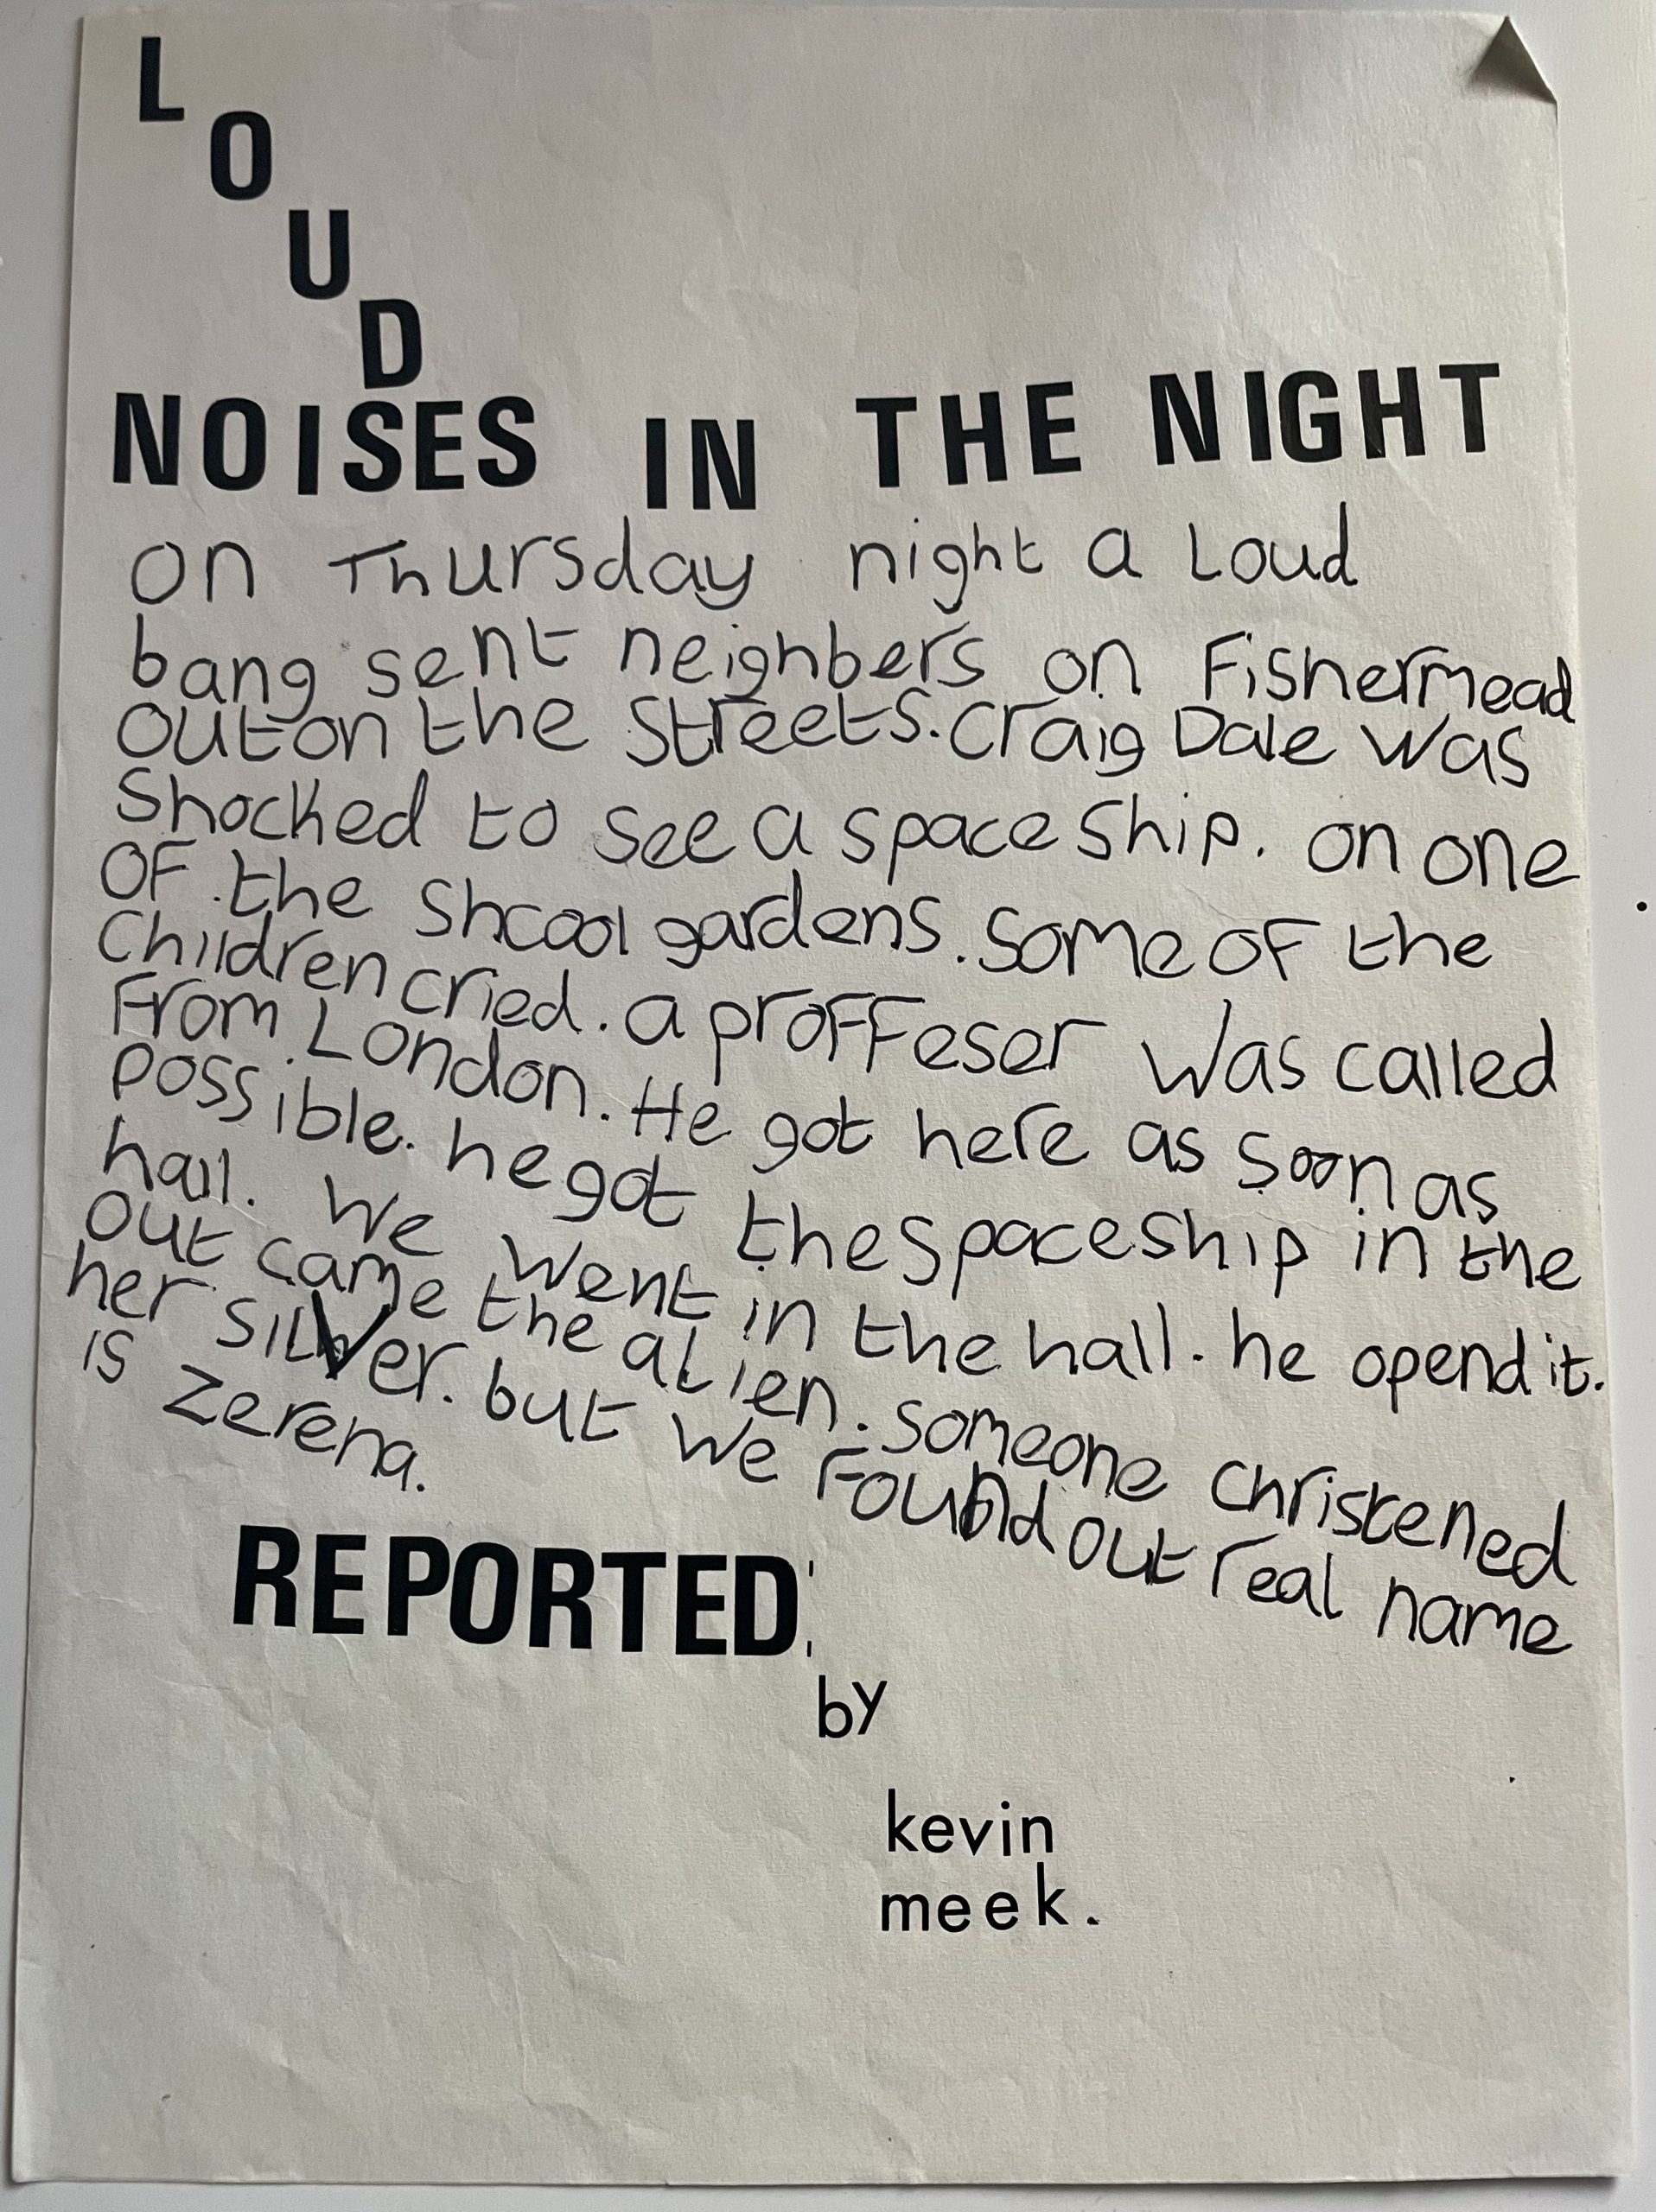 L
O
U
D
NOISES IN THE NIGHT
on Thursday night a Loud
bang sent neighbers on Fishermead
out on the streets. Craig Dale was
Shocked to see a space ship. on one
OF the shcool gardens. Some OF the
Children cried. a proFFeser was called
From London. He got here as soon as
possible. he got the spaceship in the
hall. We went in the hall. he opend it.
out came the aLien. someone christened
her siLVer. but we Found out real name
is Zerena.
REPORTED:
by
kevin
meek.